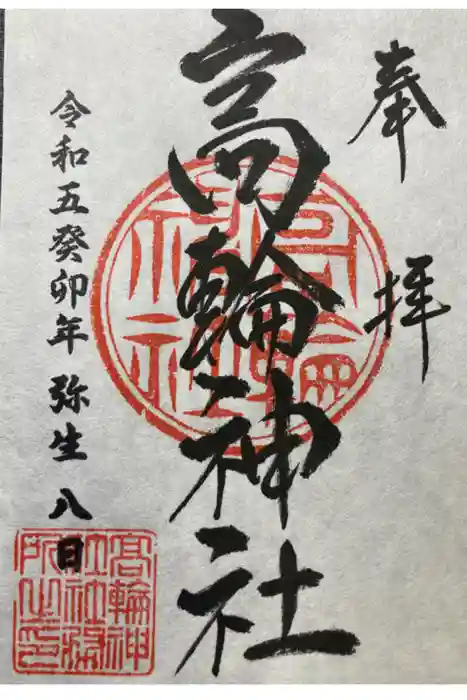 奉拝
高輪神社
令和五癸卯年弥生八日
高輪神社
髙輪神社務所之印